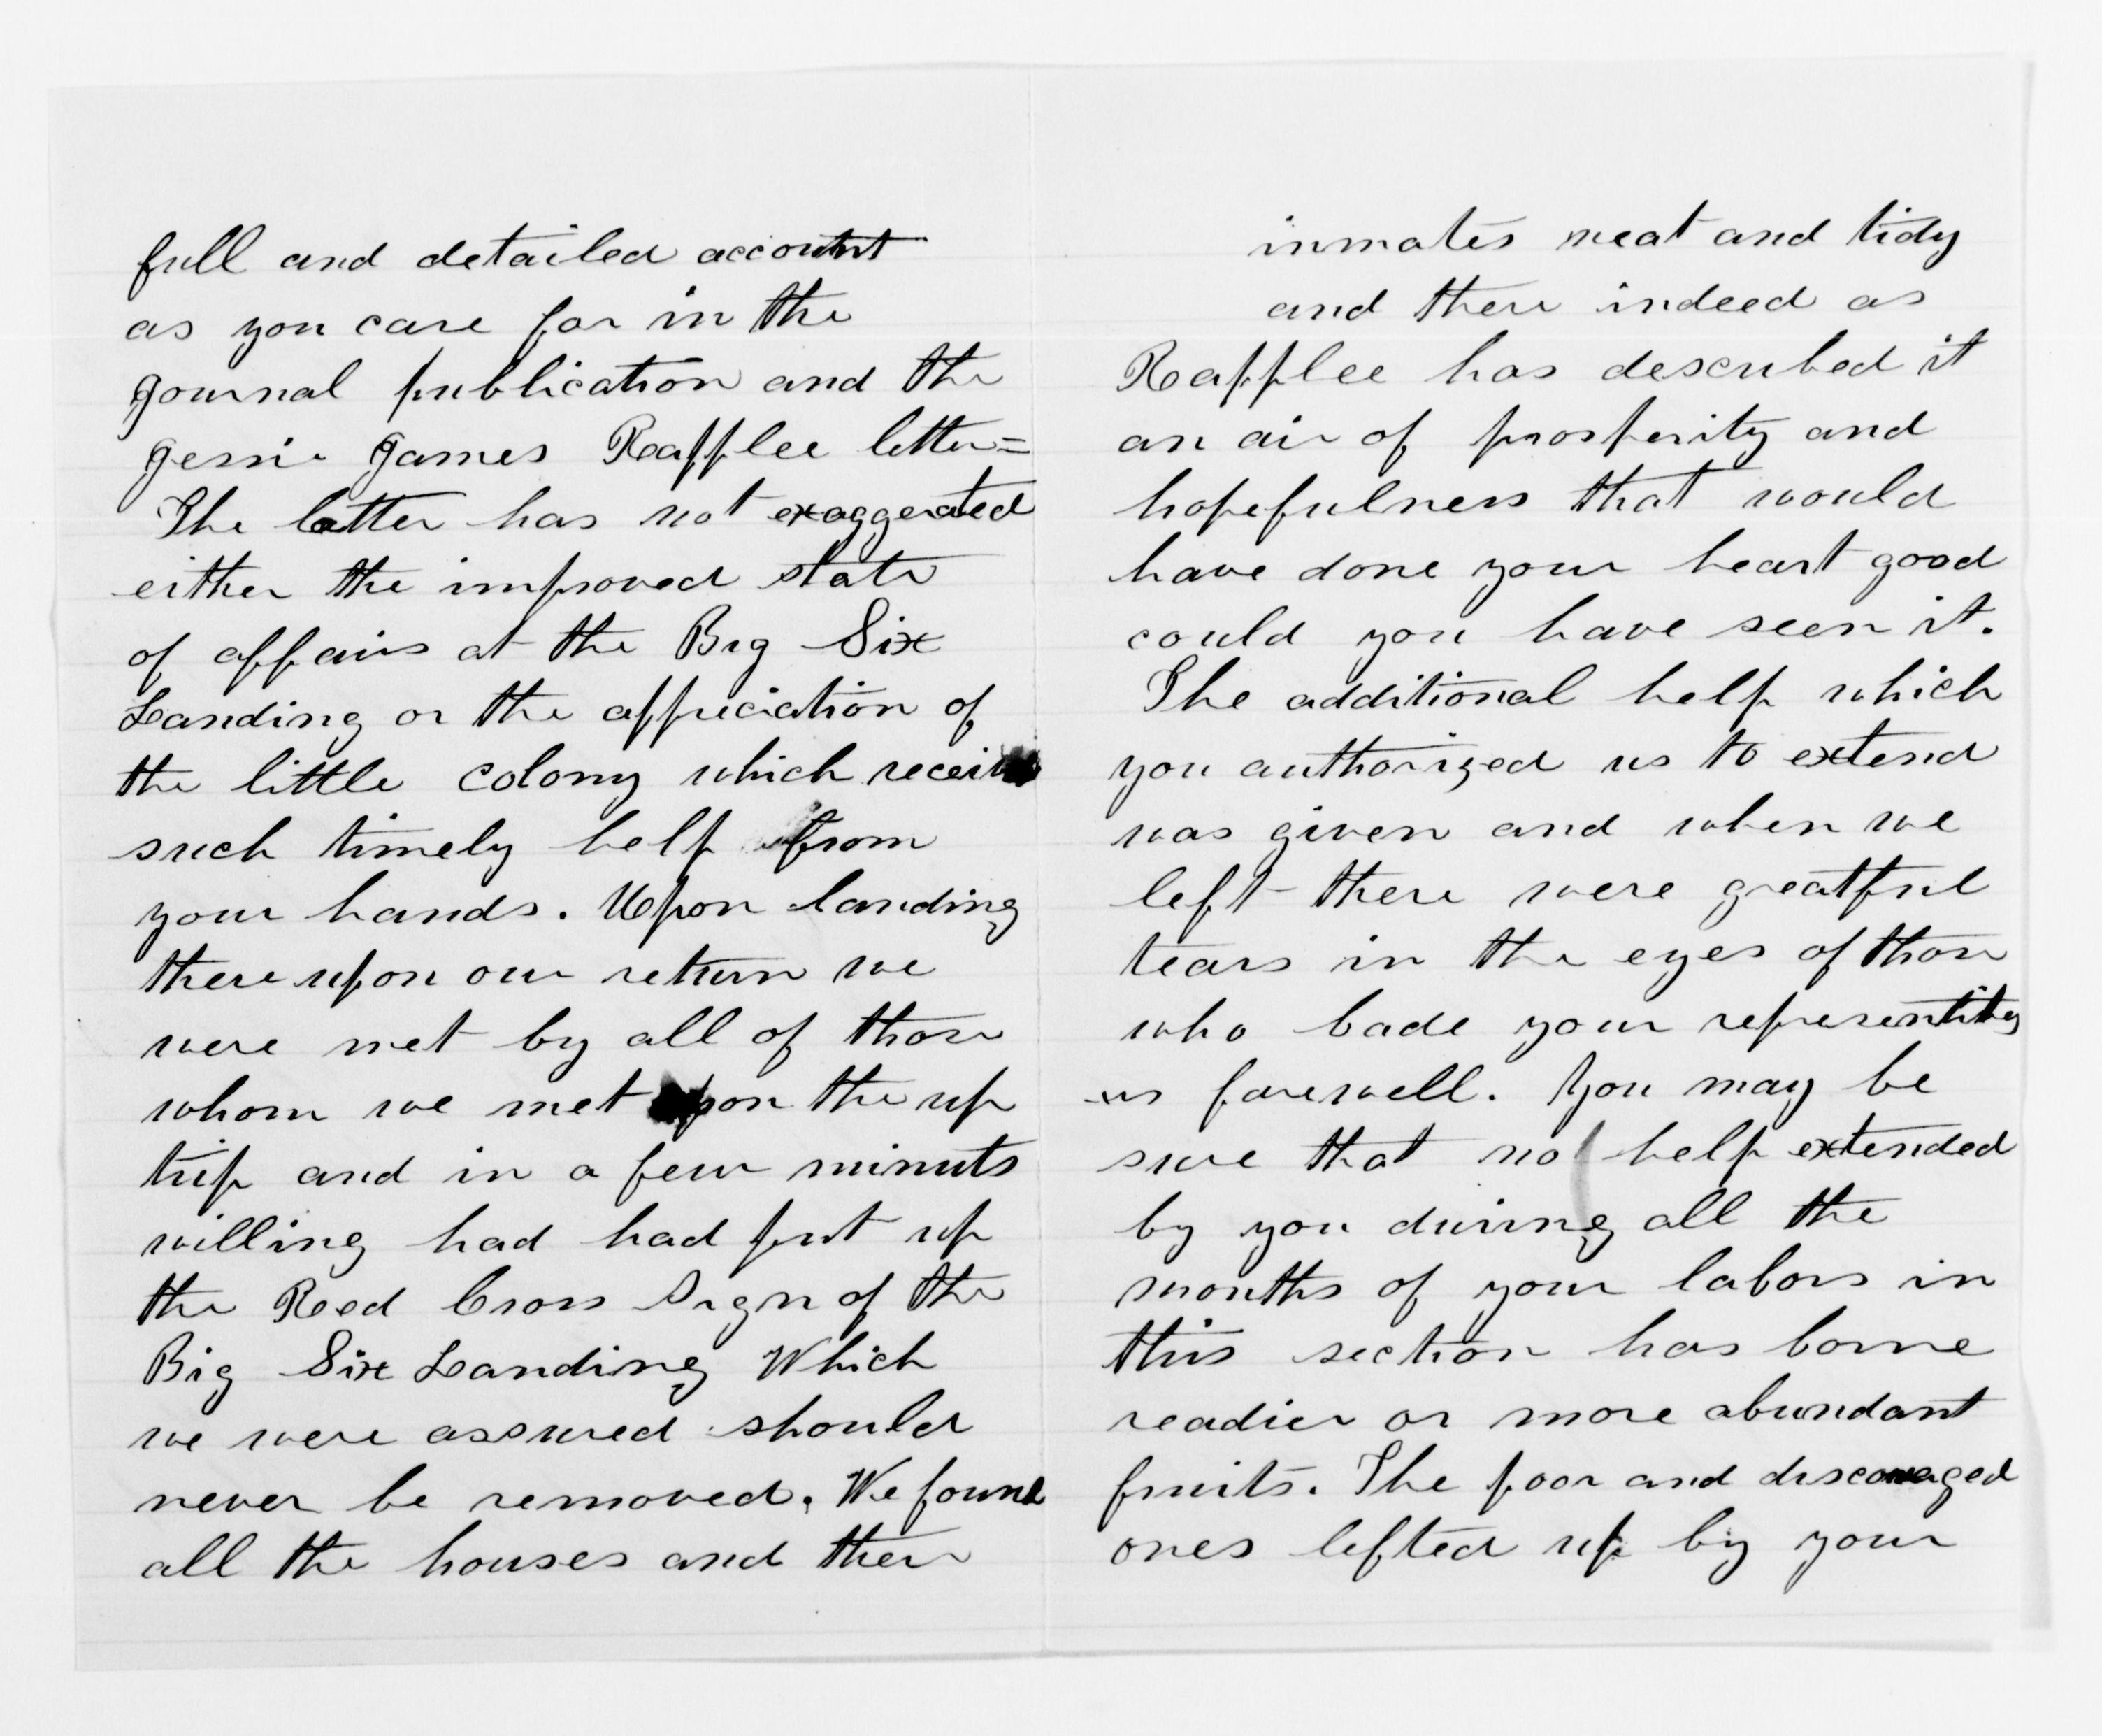 full and detailed account
as you care for in the
Journal publication and the
Jessie James Rafflee letter=
The latter has not exaggerated
either the improved state
of affairs at the Big Six
Landing or the appreciation of
the little colony which
such timely help from
your hands. Upon landing
there upon our return we
were met by all of those
whom we met upon the up
trip and in a few minuts
willing had had put up
the Red Cross Sign of the
Big Six Landing Which
we were assured should
never be removed. We found
all the houses and their
inmates neat and tidy
and there indeed as
Rafflee has described it
an air of prosperity and
hopefulness that would
have done your heart good
could you have seen it.
The additional help which
you authorized us to extend
was given and when we
left there were greatful
tears in the eyes of those
who bade your
farewell. You may be
sure that no help extended
by you during all the
months of your labors in
this section has borne
readier or more abundant
fruits. The poor and discouraged
ones lifted up by your